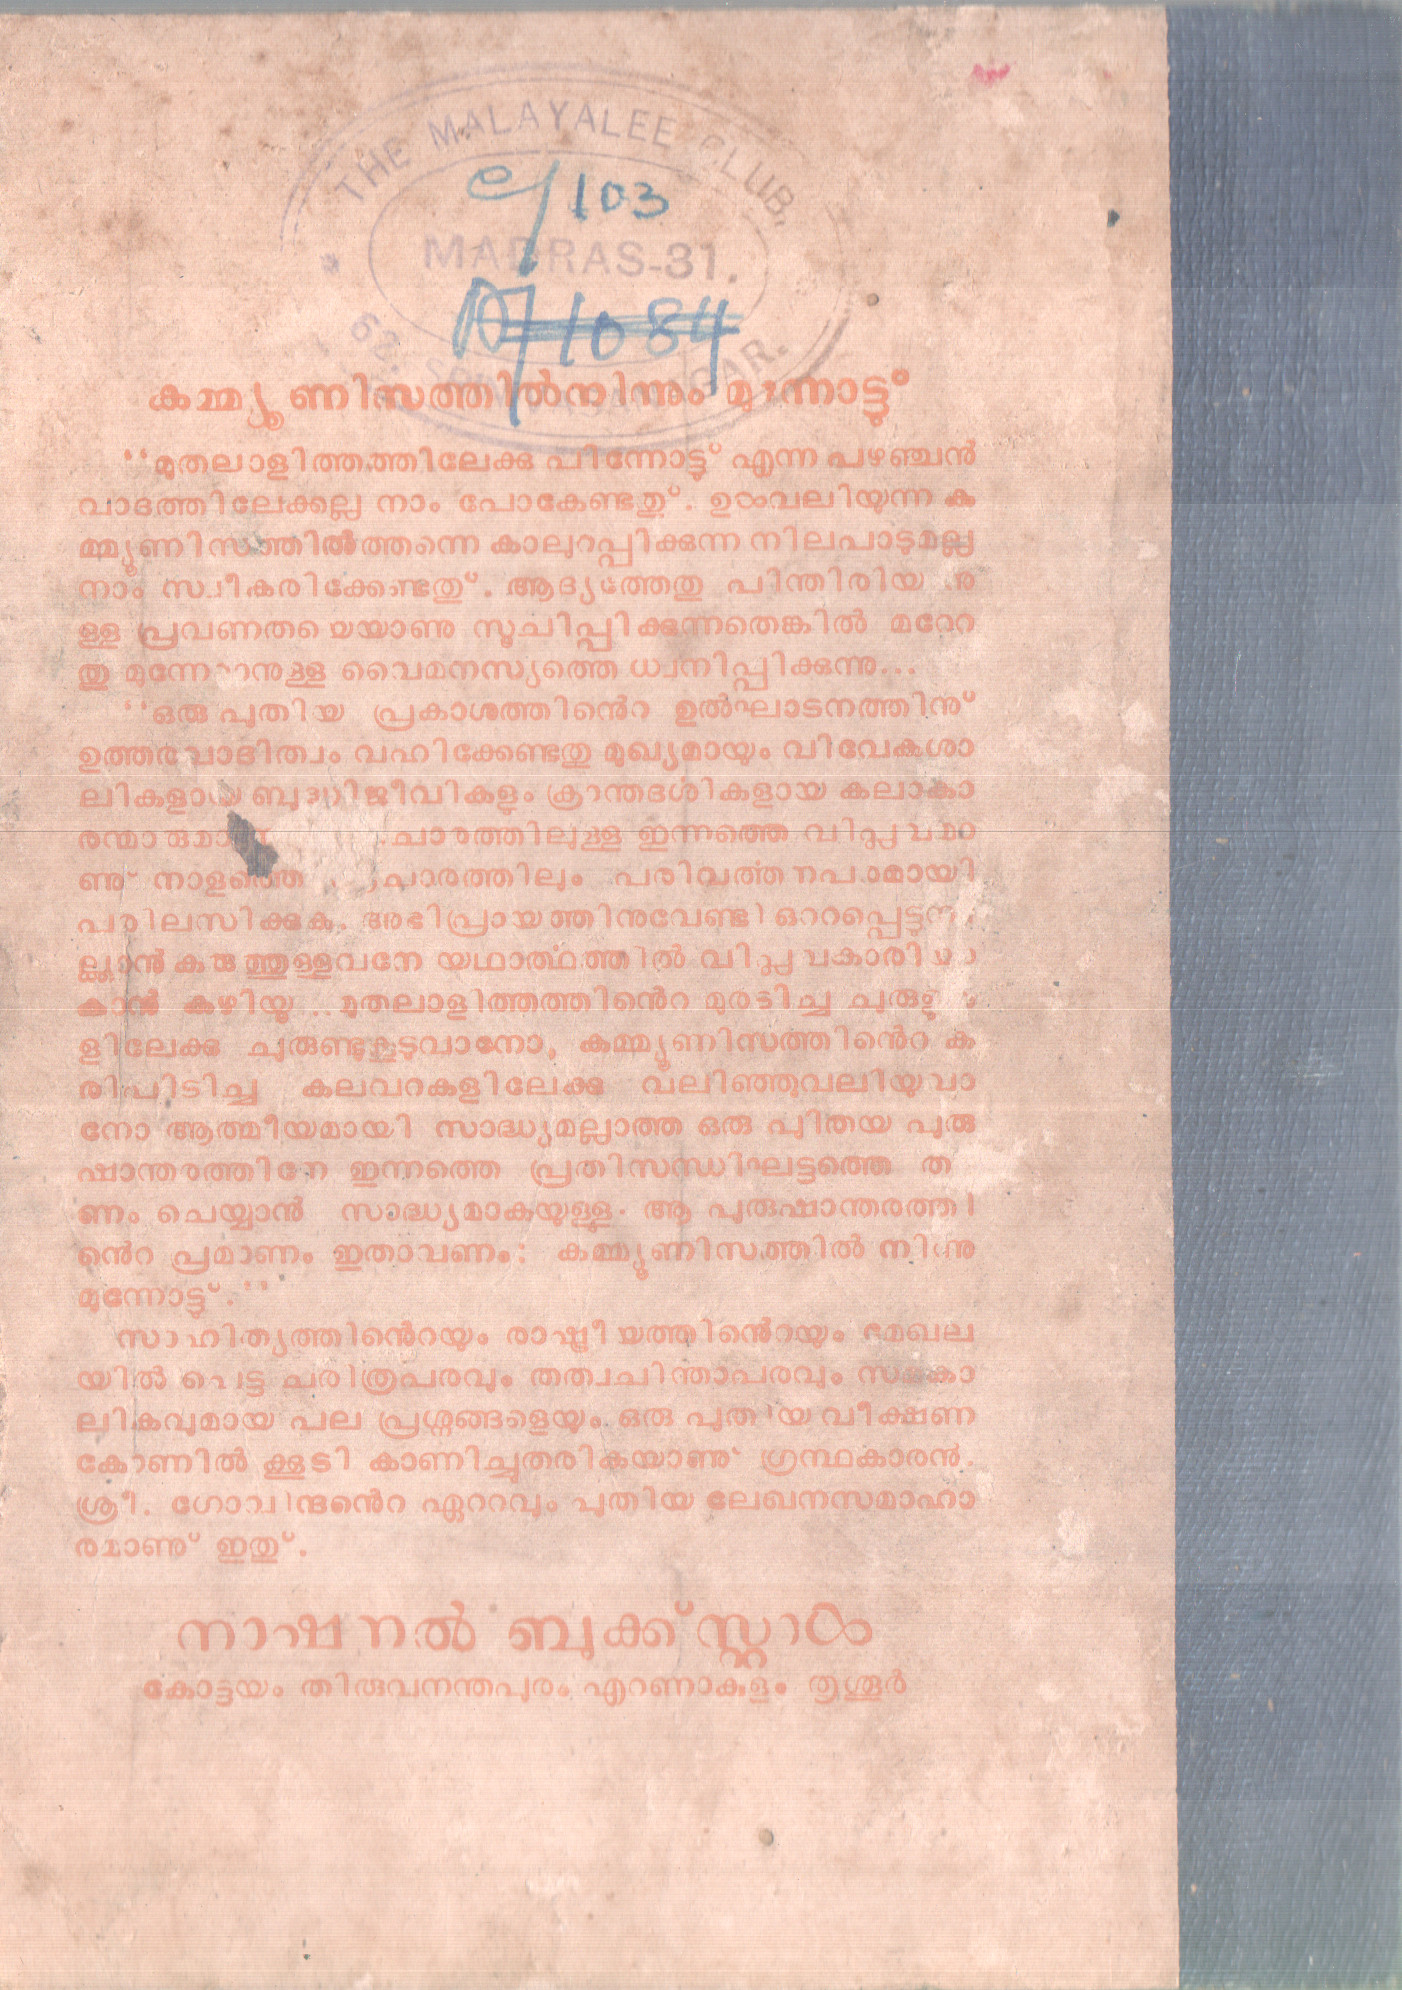 THE MALAYALEE CLUB,
MADRAS-31.
62,
c/103
A/1084
കമ്മ്യൂണിസത്തിൽനിന്നും മുന്നോട്ടു്
‘‘മുതലാളിത്തത്തിലേക്കു പിന്നോട്ടു് എന്ന പഴഞ്ചൻ
വാദത്തിലേക്കല്ല നാം പോകേണ്ടതു്. ഉഠംവലിയുന്ന ക
മ്മ്യൂണിസത്തിൽത്തന്നെ കാലുറപ്പിക്കുന്ന നിലപാടുമല്ല
നാം സ്വീകരിക്കേണ്ടതു്. ആദ്യത്തേതു പിന്തിരിയാനു
ള്ള പ്രവണതയെയാണു സൂചിപ്പിക്കുന്നതെങ്കിൽ മറേറ
തു മുന്നേറാനുള്ള വൈമനസ്യത്തെ ധ്വനിപ്പിക്കുന്നു...
‘‘ഒരു പുതിയ പ്രകാശത്തിൻെറ ഉൽഘാടനത്തിനു്
ഉത്തരവാദിത്വം വഹിക്കേണ്ടതു മുഖ്യമായും വിവേകശാ
ലികളായ ബുദ്ധിജീവികളും ക്രാന്തദർശികളായ കലാകാ
രന്മാരുമാ ചാരത്തിലുള്ള ഇന്നത്തെ വിപ്ലവമാ
ണു് നാളത്തെ പരിവർത്തനപരമായി
പരിലസിക്കുക. അഭിപ്രായത്തിനുവേണ്ടി ഒററപ്പെട്ടുനി
ല്ക്കാൻ കരുത്തുള്ളവനേ യഥാർത്ഥത്തിൽ വിപ്ലവകാരിയാ
കാൻ കഴിയൂ...മുതലാളിത്തത്തിൻെറ മുരടിച്ച ചുരുളുക
ളിലേക്കു ചുരുണ്ടുകൂടുവാനോ, കമ്മ്യൂണിസത്തിൻെറ ക
രിപിടിച്ച കലവറകളിലേക്കു വലിഞ്ഞുവലിയുവാ
നോ ആത്മീയമായി സാദ്ധ്യമല്ലാത്ത ഒരു പുതിയ പുരു
ഷാന്തരത്തിനേ ഇന്നത്തെ പ്രതിസന്ധിഘട്ടത്തെ ത
ണം ചെയ്യാൻ സാദ്ധ്യമാകയുള്ളു. ആ പുരുഷാന്തരത്തി
ൻെറ പ്രമാണം ഇതാവണം: കമ്മ്യൂണിസത്തിൽ നിന്നു
മുന്നോട്ടു്.’’
സാഹിത്യത്തിൻെറയും രാഷ്ട്രീയത്തിൻെറയും മേഖല
യിൽ പെട്ട ചരിത്രപരവും തത്വചിന്താപരവും സമകാ
ലികവുമായ പല പ്രശ്നങ്ങളെയും ഒരു പുതിയ വീക്ഷണ
കോണിൽ ക്കൂടി കാണിച്ചുതരികയാണു് ഗ്രന്ഥകാരൻ.
ശ്രീ. ഗോവിന്ദൻെറ ഏററവും പുതിയ ലേഖനസമാഹാ
രമാണു് ഇതു്.
നാഷനൽ ബുക്ക് സ്റ്റാൾ
കോട്ടയം തിരുവനന്തപുരം എറണാകുളം തൃശൂർ